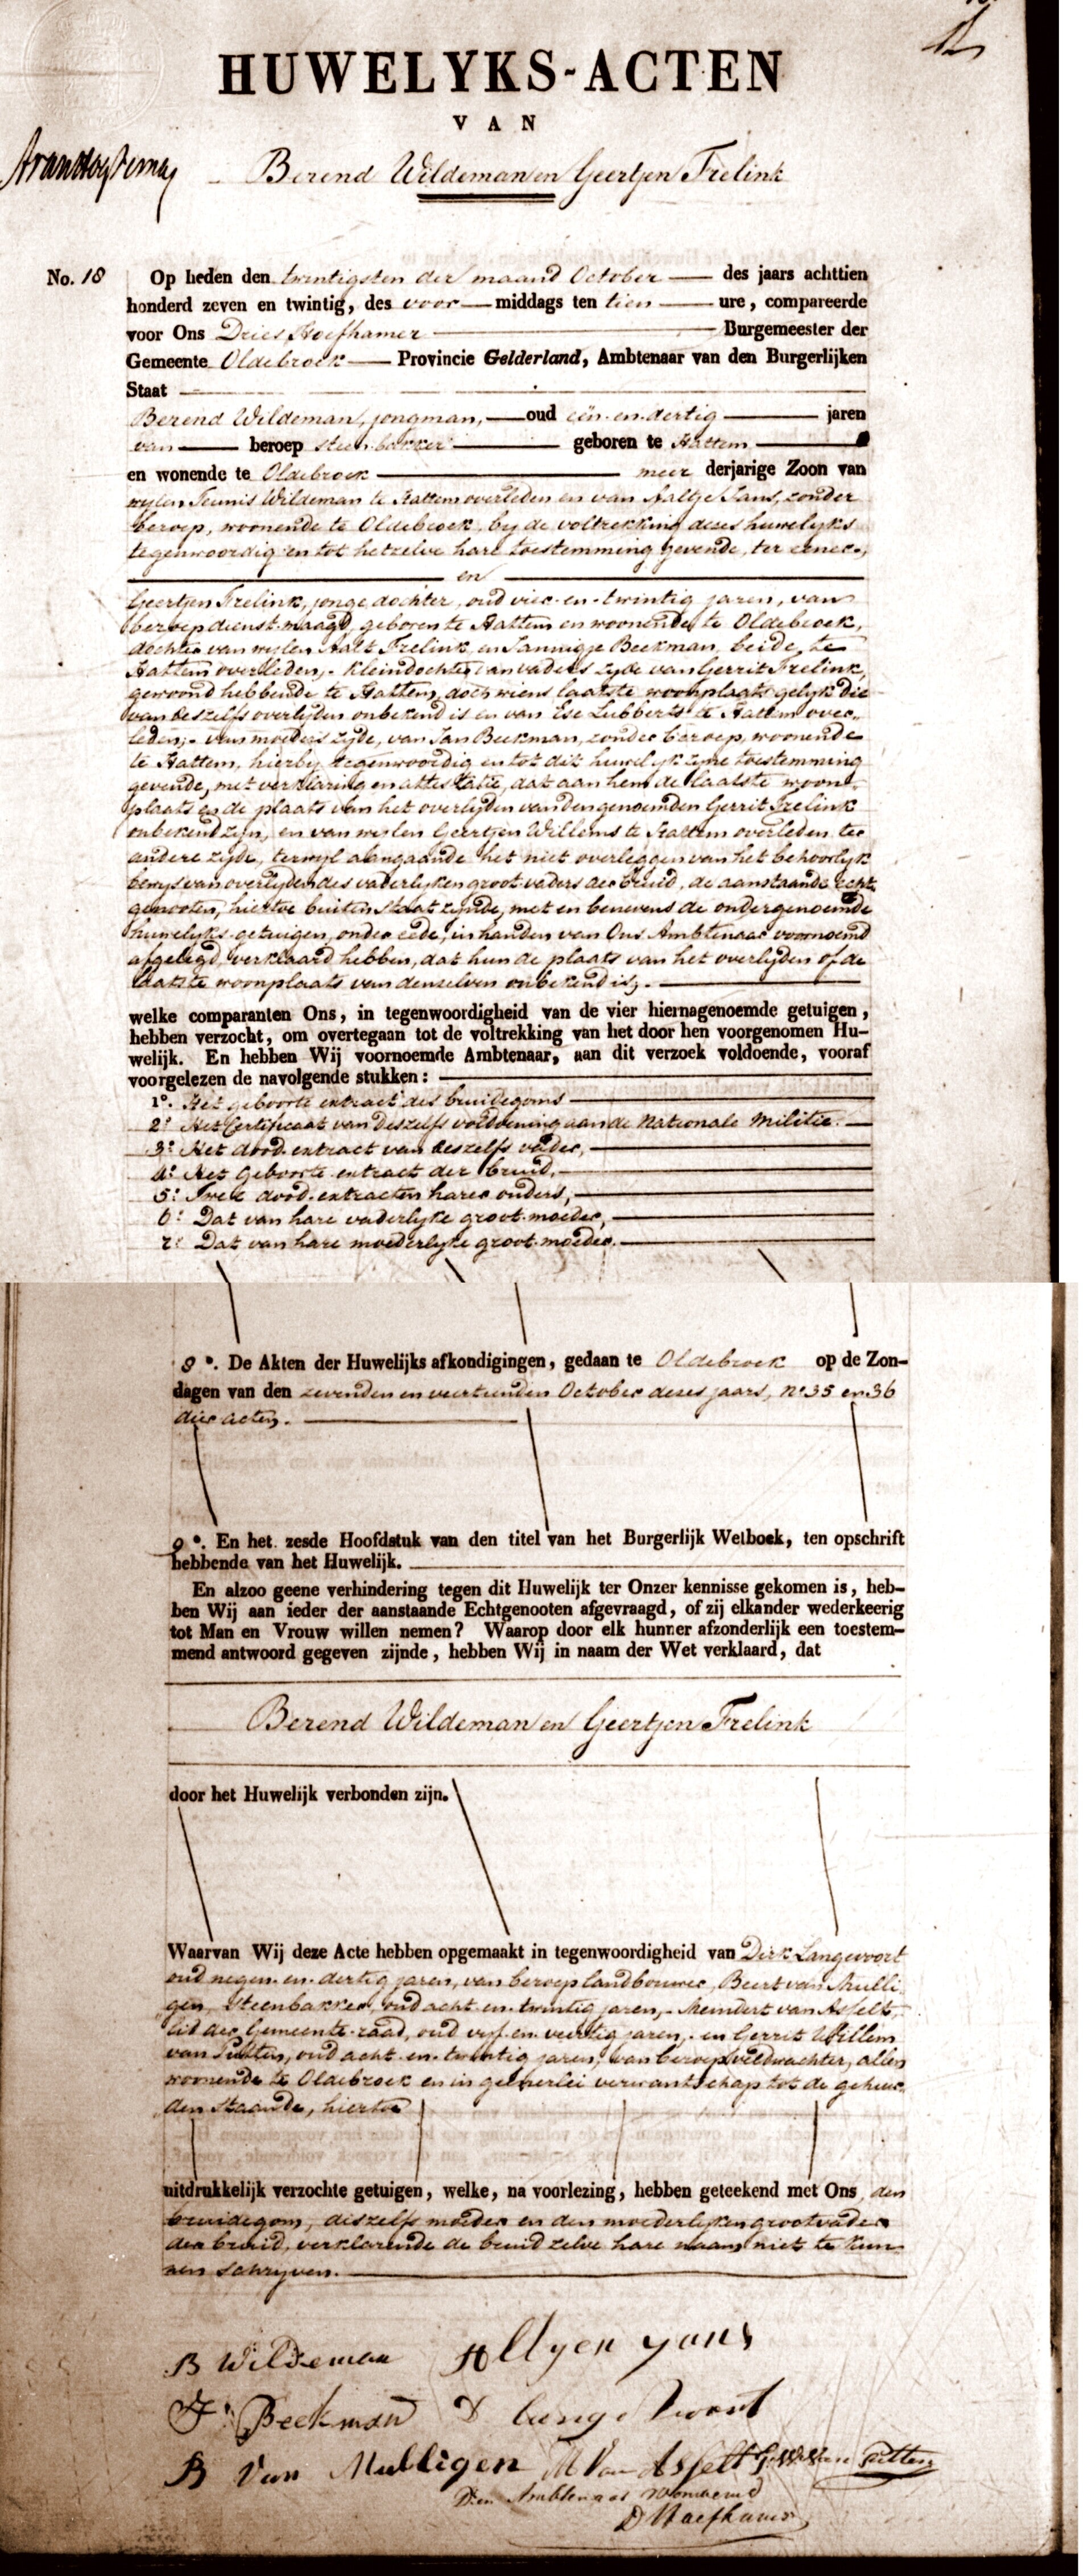 HUWELYKS-ACTEN
VAN
Berend Wildeman en Geertjen Frelink
No. 18 Op heden den twintigsten der maand October des jaars achttien
honderd zeven en twintig, des voor middags ten tien ure, compareerde
voor Ons Dries Hoefhamer Burgemeester der
Gemeente Oldebroek Provincie Gelderland, Ambtenaar van den Burgerlijken
Staat
Berend Wildeman, jongman, oud een-en-dertig jaren
van beroep steenbakker geboren te Hattem
en wonende te Oldebroek meer derjarige Zoon van
wylen Teunis Wildeman te Hattem overleden en van Aaltje Jans, zonder
beroep, woonende te Oldebroek, by de voltrekking dezes huwelyks
tegenwoordig en tot hetzelve hare toestemming gevende, ter eener,
en
Geertjen Frelink, jonge dochter, oud vier-en-twintig jaren, van
beroep dienstmaagd, geboren te Hattem en woonende te Oldebroek,
dochter van wylen Aalt Frelink en Jannigje Beekman, beide te
Hattem overleden, - kleindochter van vaders zyde van Gerrit Frelink,
gewoond hebbende te Hattem, doch wiens laatste woonplaats gelyk die
van deszelfs overlyden onbekend is en van Ese Lubberts te Hattem over-
leden; - van moeders zyde, van Jan Beekman, zonder beroep, woonende
te Hattem, hierby tegenwoordig en tot dit huwelyk zyne toestemming
gevende, met verklaring en attestatie, dat aan hem de laatste woon-
plaats en de plaats van het overlyden van den genoemden Gerrit Frelink
onbekend zyn, en van wylen Geertjen Willems te Hattem overleden, ter
andere zyde, terwyl aangaande het niet overleggen van het behoorlyk
bewys van overlyden des vaderlyken grootvaders der bruid, de aanstaande echt-
genooten, hiertoe buiten staat zynde, met en benevens de ondergenoemde
huwelyks-getuigen, onder eede, in handen van Ons Ambtenaar voornoemd
afgelegd, verklaard hebben, dat hun de plaats van het overlyden of de
laatste woonplaats van denzelven onbekend is.
welke comparanten Ons, in tegenwoordigheid van de vier hiernagenoemde getuigen,
hebben verzocht, om overtegaan tot de voltrekking van het door hen voorgenomen Hu-
welijk. En hebben Wij voornoemde Ambtenaar, aan dit verzoek voldoende, vooraf
voorgelezen de navolgende stukken:
1°. Het geboorte extract des bruidegoms
2° Het Certificaat van deszelfs voldoening aan de Nationale Militie.
3° Het dood-extract van deszelfs vader,
4° Het Geboorte-extract der bruid,
5° Twee dood-extracten harer ouders,
6° Dat van hare vaderlyke groot-moeder,
7° Dat van hare moederlyke groot-moeder.
8°. De Akten der Huwelijks afkondigingen, gedaan te Oldebroek op de Zon-
dagen van den zevenden en veertienden October dezes jaars, No 35 en 36
dier acten.
9°. En het zesde Hoofdstuk van den titel van het Burgerlijk Wetboek, ten opschrift
hebbende van het Huwelijk.
En alzoo geene verhindering tegen dit Huwelijk ter Onzer kennisse gekomen is, heb-
ben Wij aan ieder der aanstaande Echtgenooten afgevraagd, of zij elkander wederkeerig
tot Man en Vrouw willen nemen? Waarop door elk hunner afzonderlijk een toestem-
mend antwoord gegeven zijnde, hebben Wij in naam der Wet verklaard, dat
Berend Wildeman en Geertjen Frelink
door het Huwelijk verbonden zijn.
Waarvan Wij deze Acte hebben opgemaakt in tegenwoordigheid van Dirk Langevoort
oud negen-en-dertig jaren, van beroep landbouwer, Beert van Mulli-
gen, steenbakker, oud acht-en-twintig jaren, - Meindert van Asselt,
lid der Gemeente-raad, oud vyf-en-veertig jaren, - en Gerrit Willem
van Putten, oud acht-en-twintig jaren, van beroep veldwachter, allen
woonende te Oldebroek en in geenerlei verwantschap tot de gehuw-
den staande, hiertoe
uitdrukkelijk verzochte getuigen, welke, na voorlezing, hebben geteekend met Ons, den
bruidegom, deszelfs moeder en den moederlyken grootvader
der bruid, verklarende de bruid zelve hare naam niet te kun-
nen schryven.
B Wildeman Altyen yans
J. Beekman D Lange Voort
B Van Mulligen M Van Asselt G W Van Putten
Den Ambtenaar voornoemd
D Hoefhamer